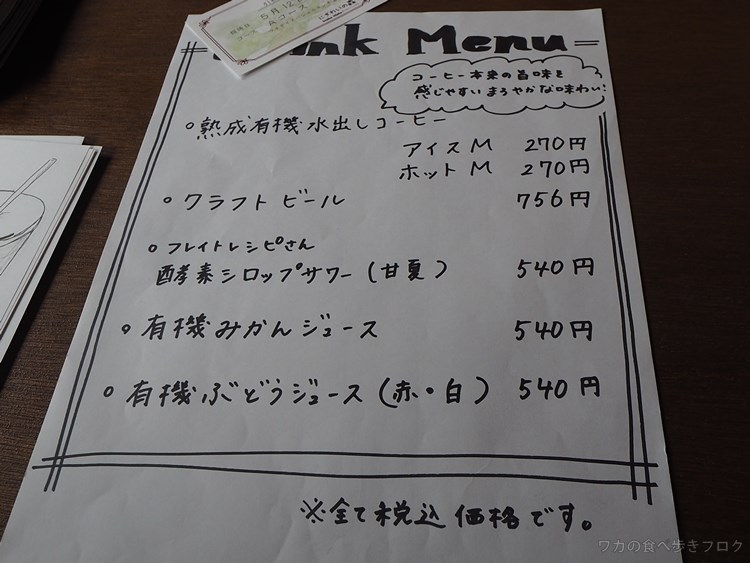 Menu
コーヒー本来の旨味を
感じやすいまろやかな味わい
○熟成有機水出しコーヒー
アイスM 270円
ホットM 270円
○クラフトビール 756円
○フレイトレシピさん
酵素シロップサワー(甘夏) 540円
○有機みかんジュース 540円
○有機ぶどうジュース(赤・白) 540円
※全て税込価格です。
ワカの食べ歩きブログ